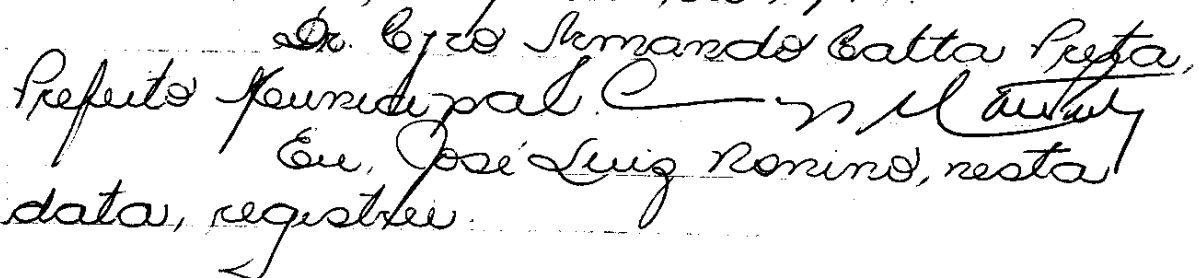 Dr. Cyro Armando Catta Preta,
Prefeito Municipal.
Eu, José Luiz Romino, nesta
data, registrei.